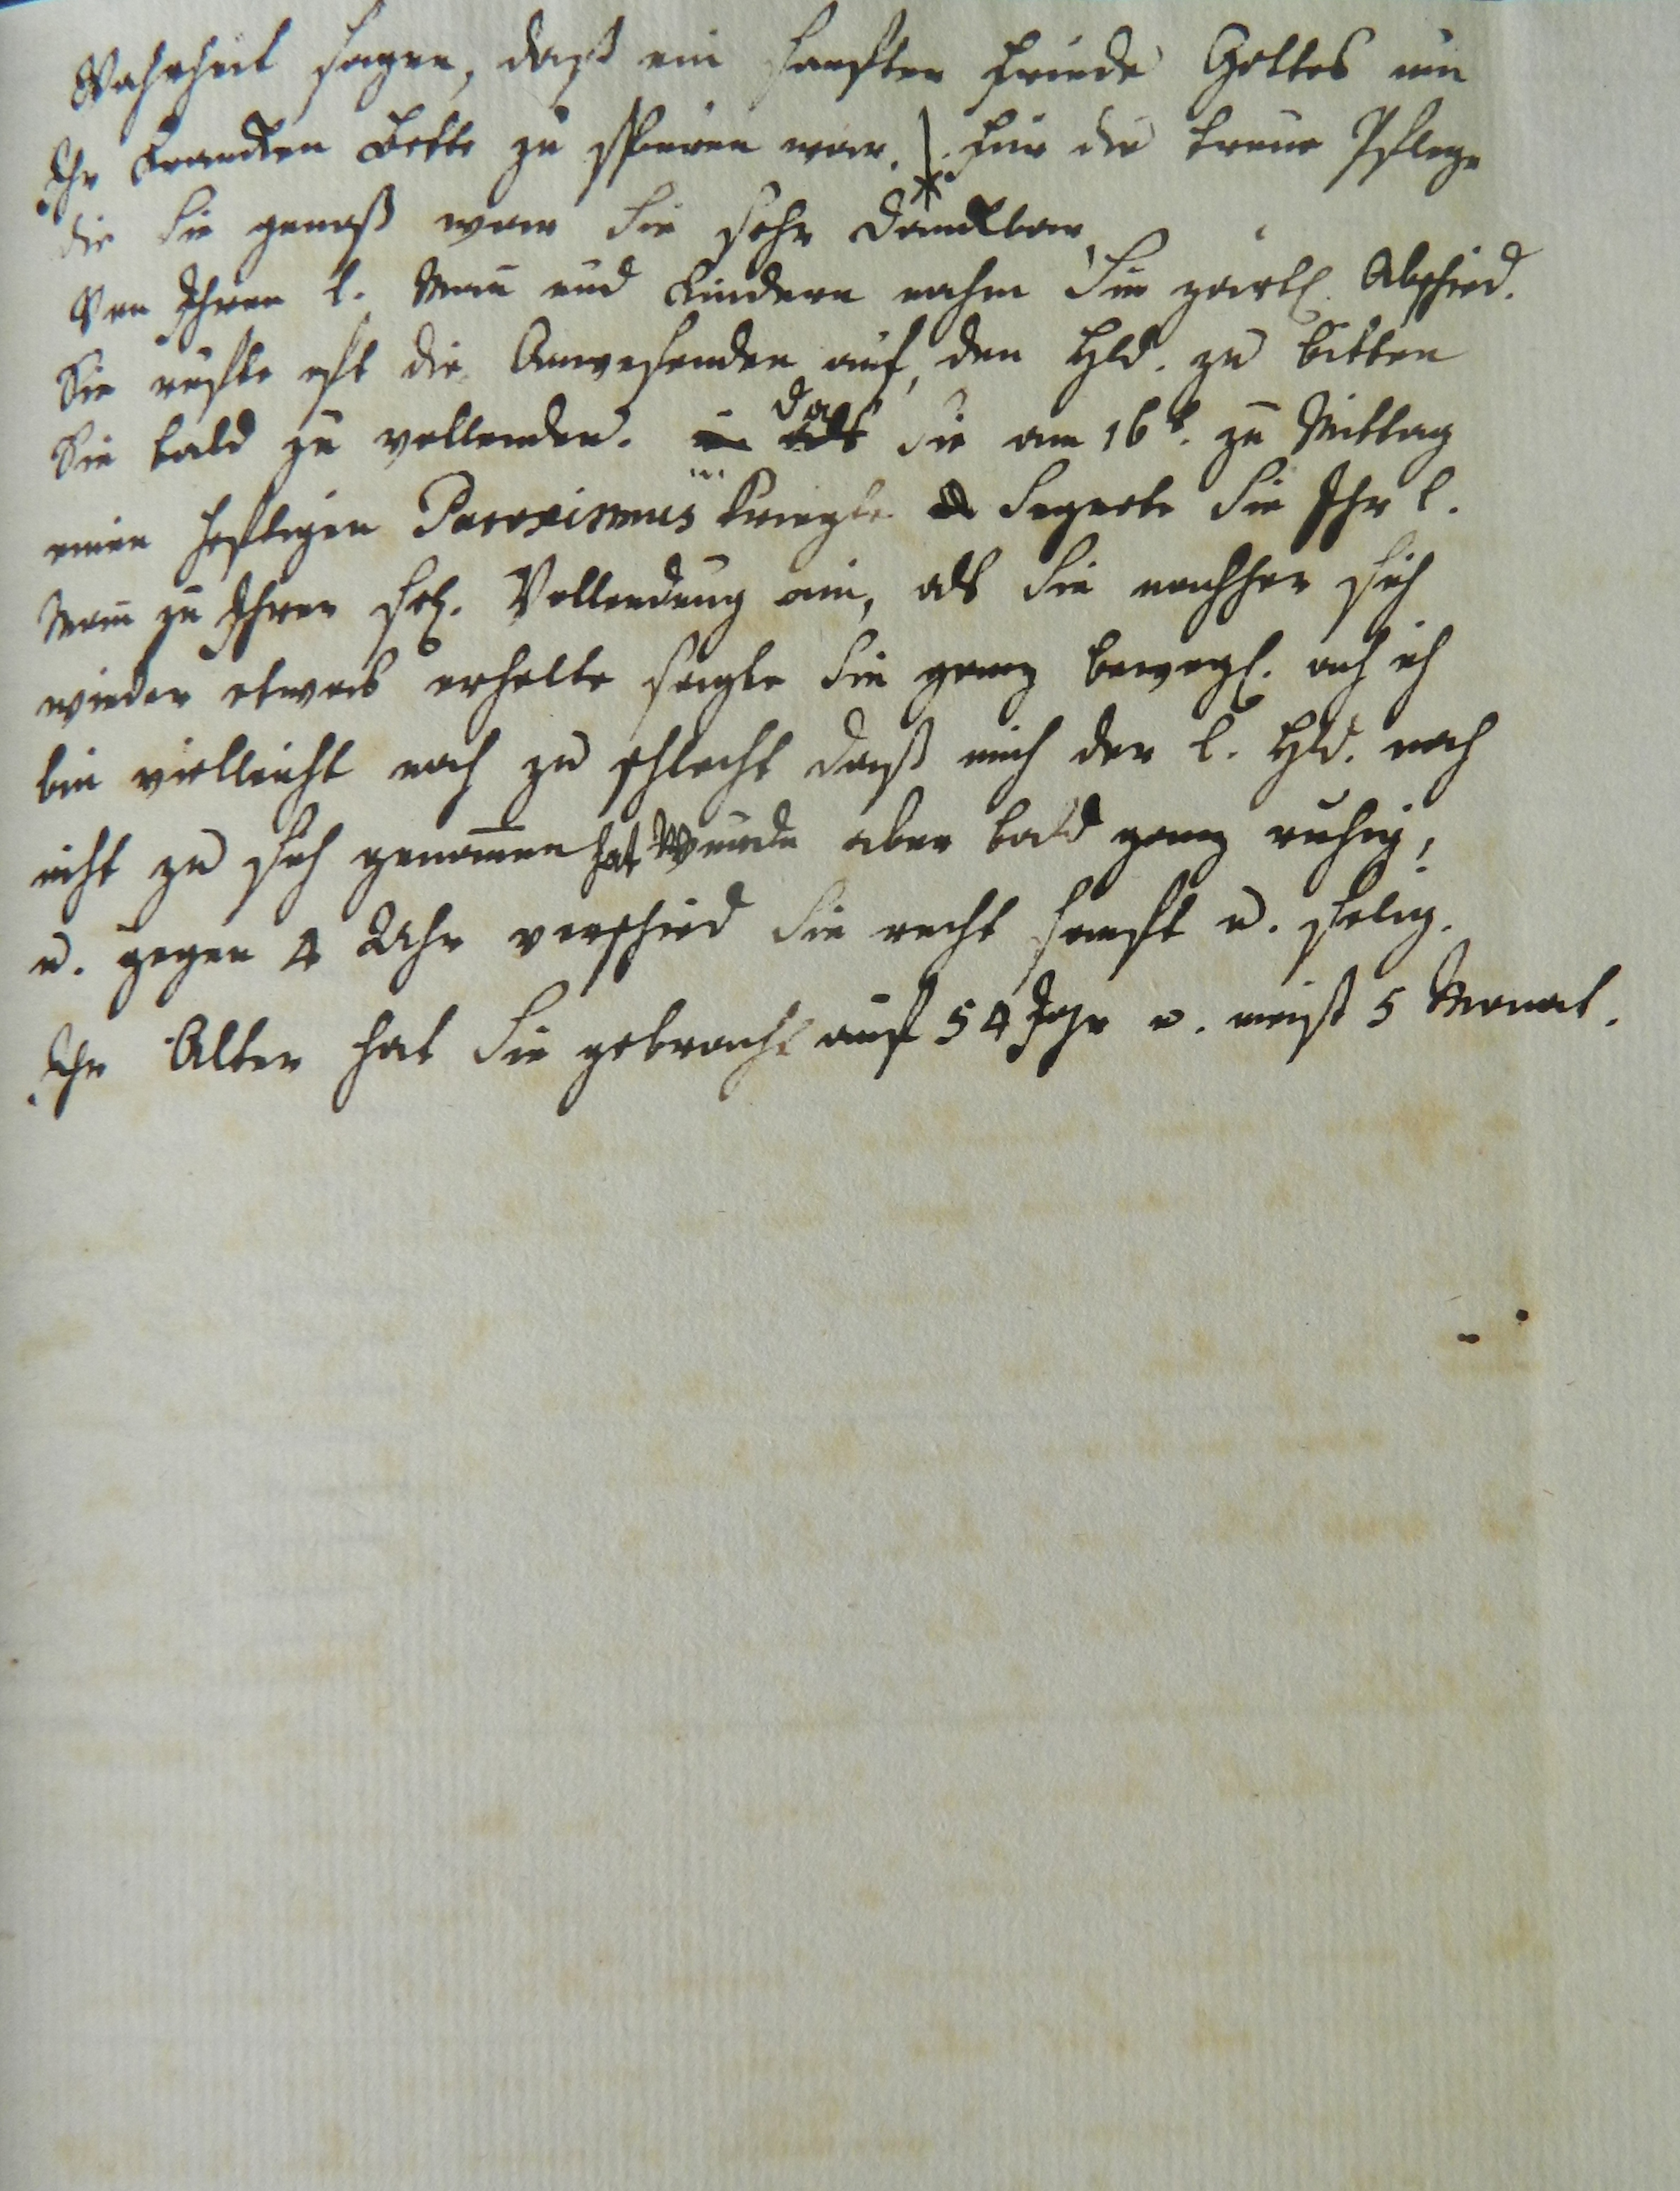 Wahrheit sagen, daß ein sanfter Friede Gottes um
Ihr Krancken Bette zu spüren war. Für die treue Pflege
die Sie genoß war Sie sehr danckbar,
Von Ihren l. Mañ und Kindern nahm Sie zärtl. Abschied.
Sie rufte oft die Anwesenden auf, den Hld. zu bitten
Sie bald zu vollenden. da Sie am 16t. zu Mittag
einen heftigen Paroxismus kriegte Segnete Sie Ihr l.
Mañ zu Ihrer sel. Vollendung ein, als Sie nachher sich
wieder etwas erholte sagte Sie ganz bewegl. ach ich
bin vielleicht noch zu schlecht daß mich der l. Hld. noch
nicht zu sich genom̅en hat Wurde aber bald ganz ruhig,
u. gegen 4 Uhr verschied Sie recht sanft u. selig.
Ihr Alter hat Sie gebracht auf 54 Jahr u. meist 5 Monat.